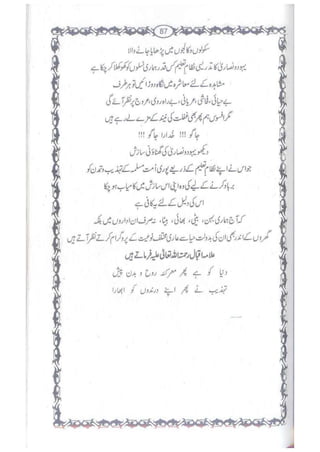 87
سکولوں و کالجوں میں پڑھایا جانے والا
یہود و نصاریٰ کا تدریسی نظام تعلیم کس قدر ہماری نسلوں کو کھوکھلا کر چکا ہے
مشاہدہ کے لئے معاشرہ میں نگاہ دوڑائیں تو ہر طرف
بے حیائی، فحاشی، عریانی، بے راہ روی، عروج پر نظر آئے گی
مگر افسوس ہم پھر بھی غفلت کی نیند کے مزے لے رہے ہیں
جاگو !!! خدارا جاگو !!!
دیکھو یہود و نصاریٰ کی گھناؤنی سازش
جو اس نے اپنے نظام تعلیم کے ذریعے پوری اُمت مسلمہ کے تہذیب و تمدن کو
برباد کرنے کے لیے کی وہ اپنی اس سازش میں کامیاب ہو چکا
اس کی دلیل کے لئے یہ کافی ہے
کہ آج ہماری بہن، بیٹی، بھائی، بیٹا، نہ صرف ان اداروں میں بلکہ
گھروں کے اندر بھی ان کی بدولت حیا سے عاری مختلف نوعیت کے پروگرام کرتے نظر آتے ہیں
علامہ اقبال رحمۃ اللہ تعالیٰ علیہ فرماتے ہیں
دنیا کو ہے پھر معرکۂ روح و بدن پیش
تہذیب نے پھر اپنے درندوں کو ابھارا